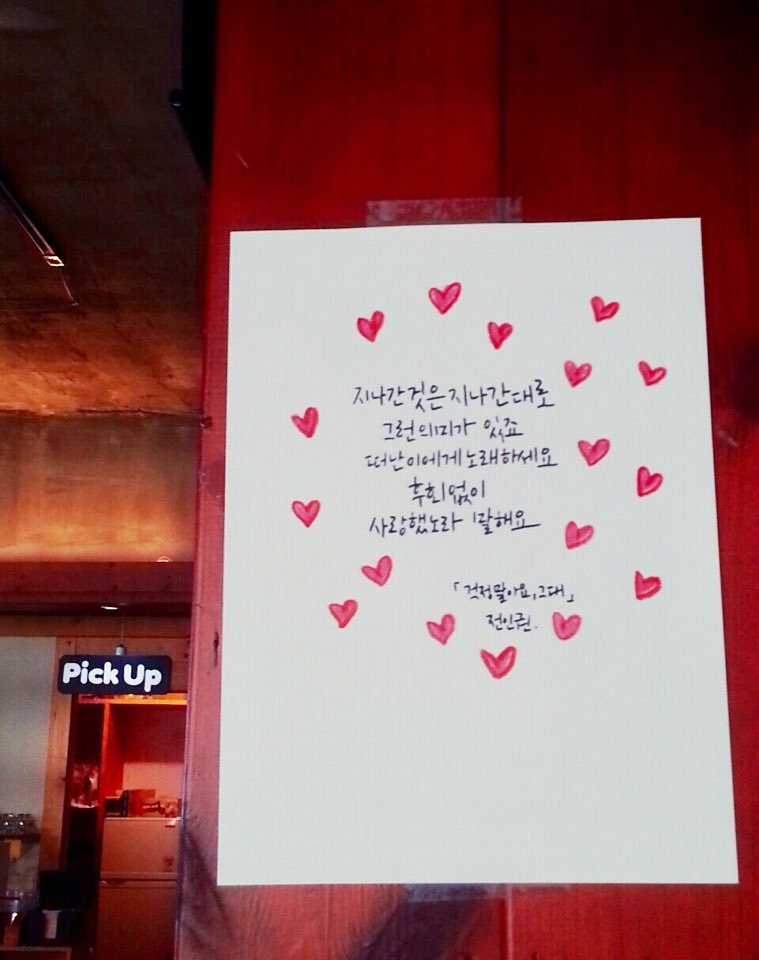 지나간것은 지나간대로
그런 의미가 있죠
떠난이에게 노래하세요
후회없이
사랑했노라 말해요
「걱정말아요, 그대」
전인권.
Pick Up